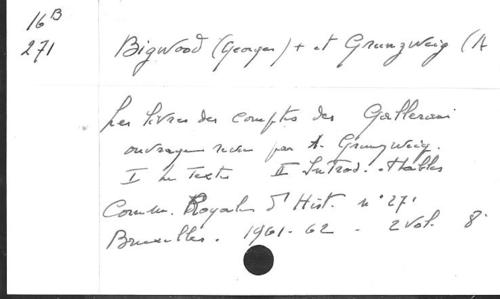 16 B
271
Bigwood (Georges) + et Grunzweig (A
Les livres des comptes des Gallerani
ouvrage revu par A. Grunzweig.
I Les Textes II Introd. + tables
Comm. Royale d'Hist. n° 271
Bruxelles. 1961-62 - 2 vol. 8°